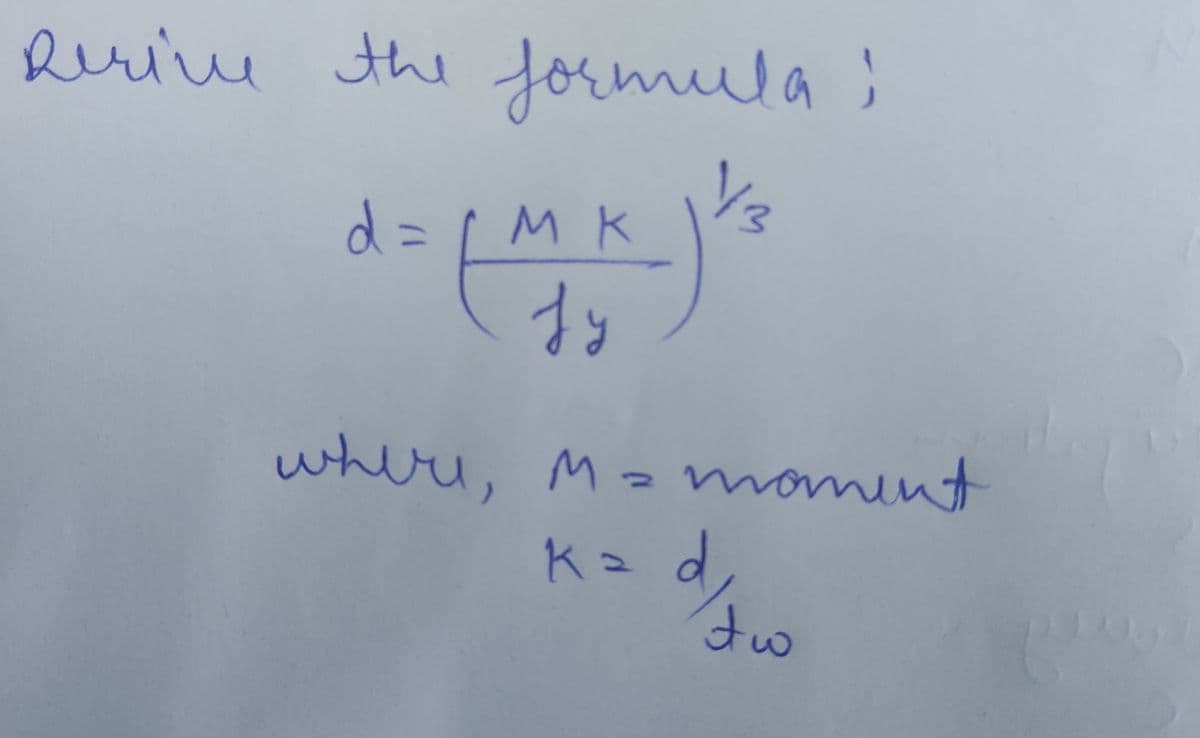 Derive the formula ;
d = ( M K / fy )^1/3
where, M = moment
K = d/tw